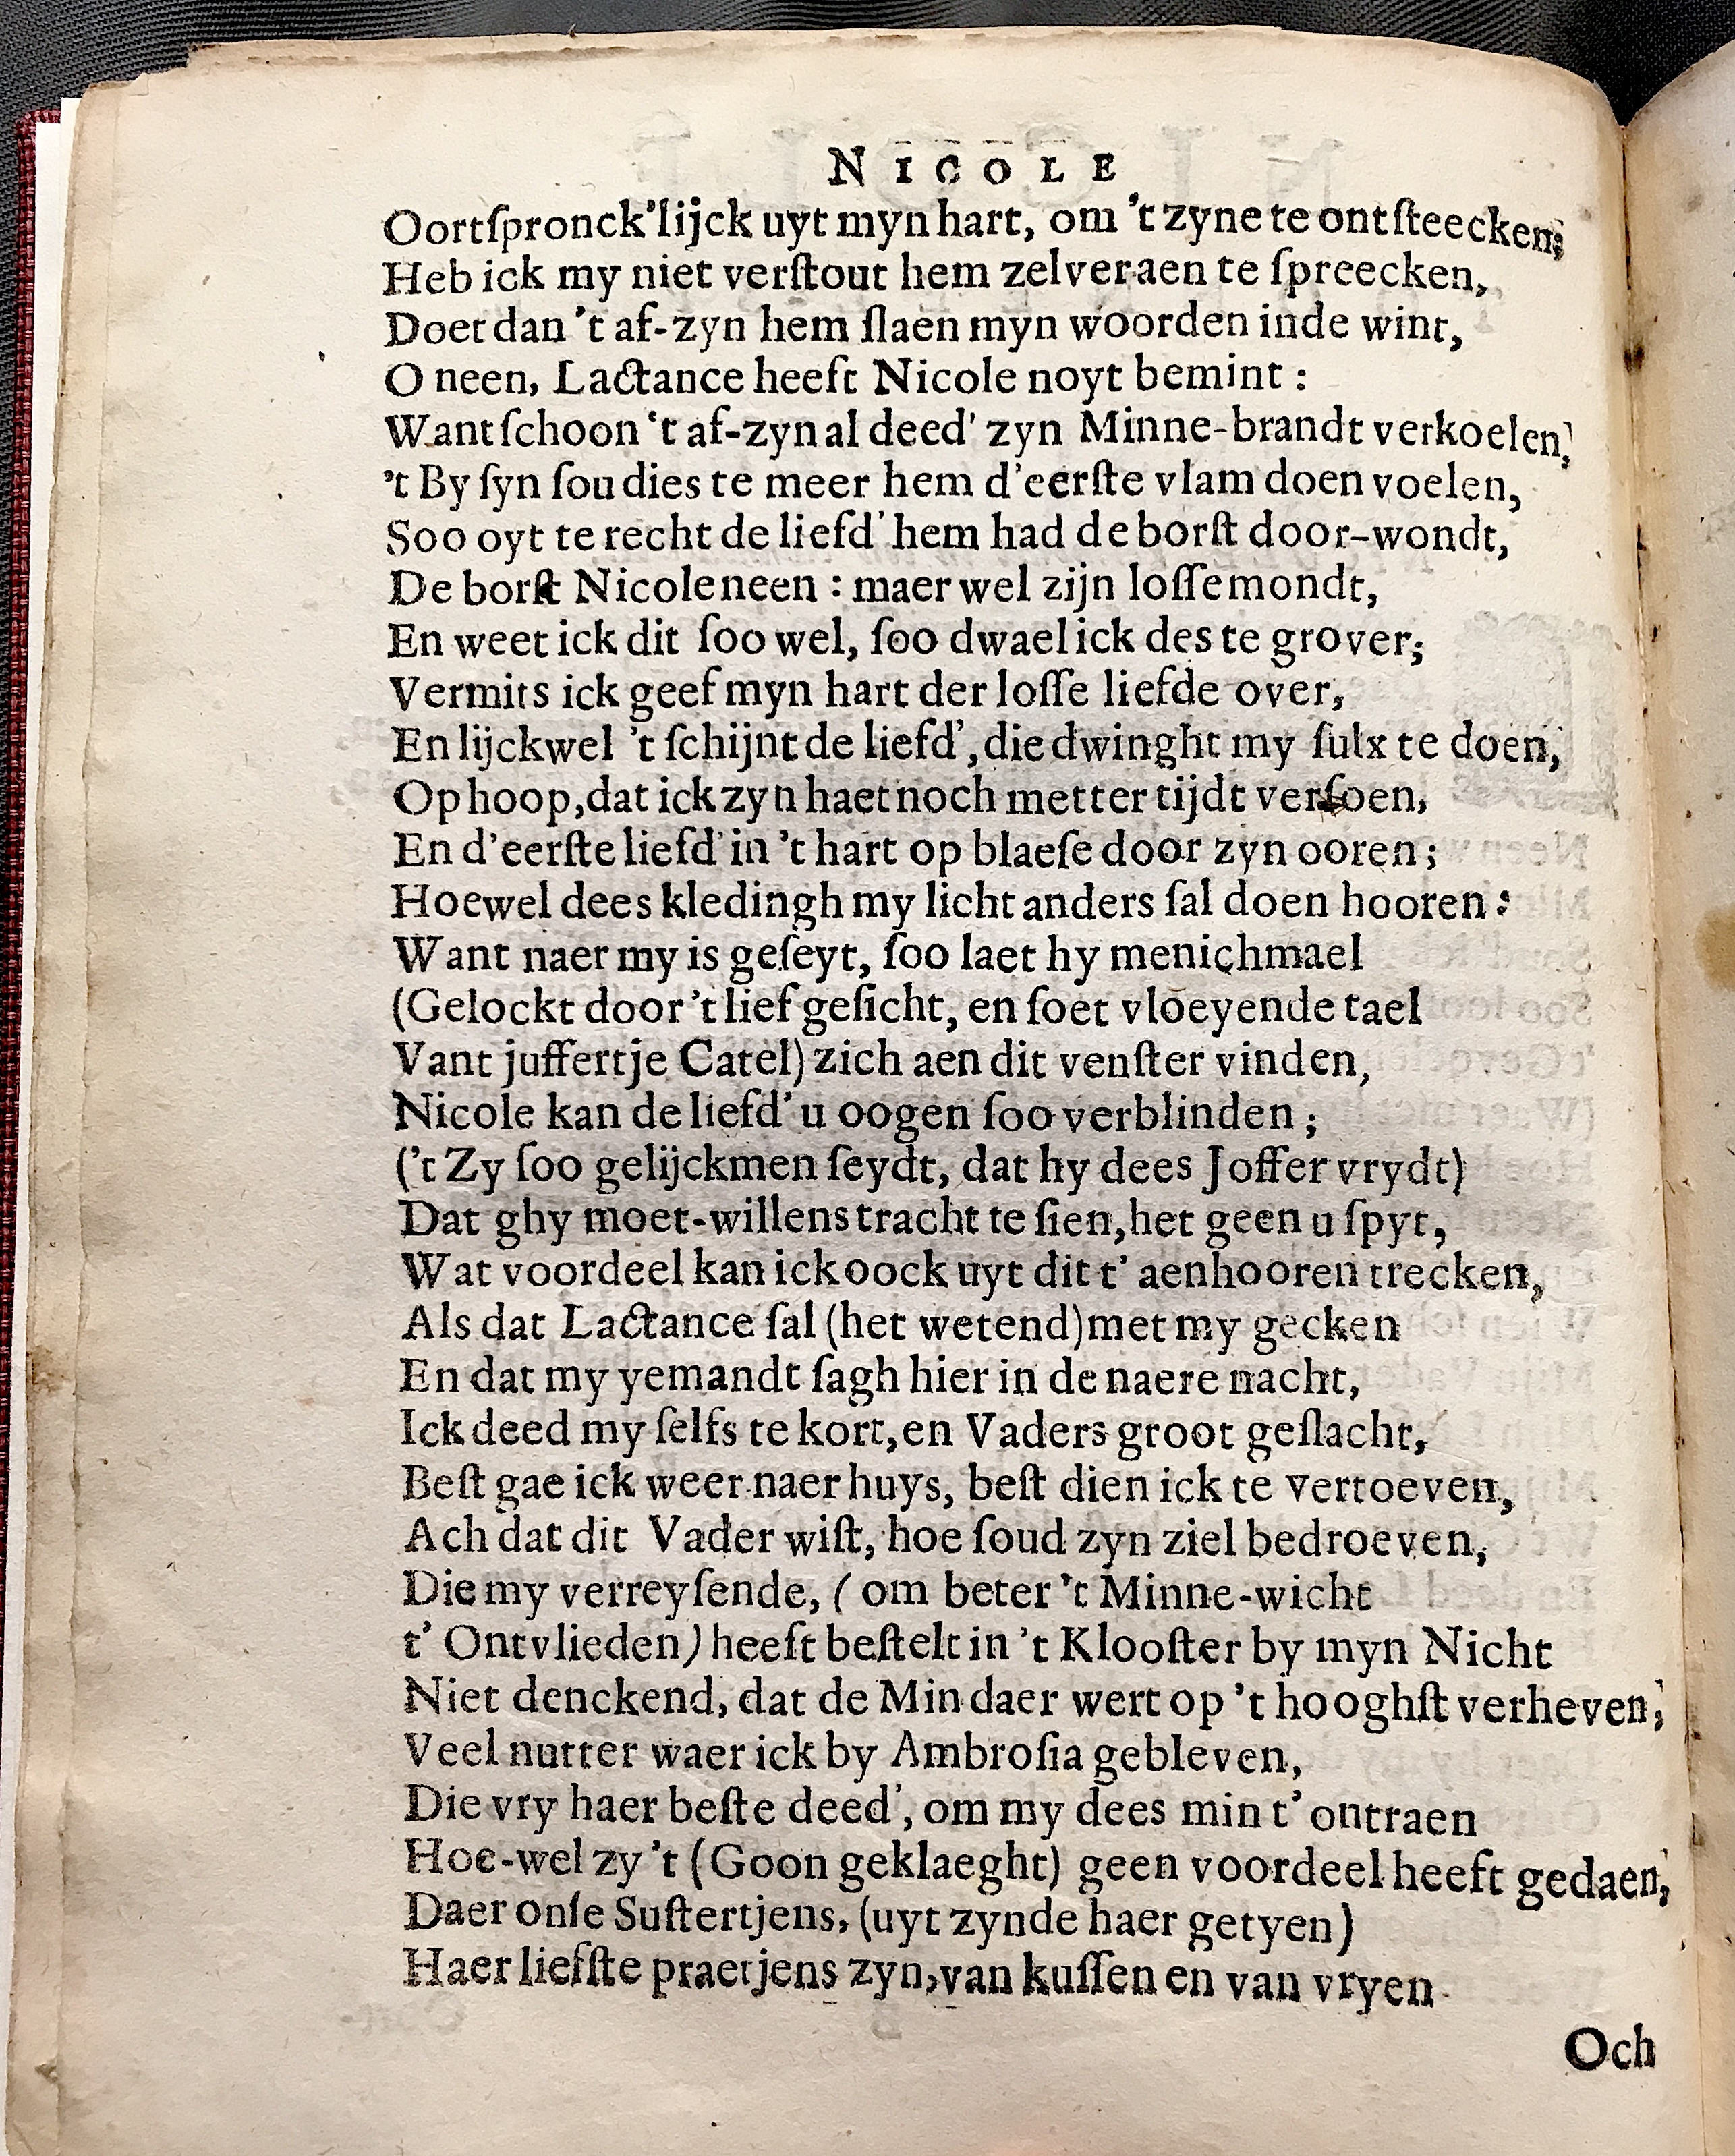 NICOLE
Oortſpronck'lijck uyt myn hart, om 't zyne te ontſteecken;
Heb ick my niet verſtout hem zelver aen te ſpreecken,
Doet dan 't af-zyn hem ſlaen myn woorden inde wint,
O neen, Lactance heeft Nicole noyt bemint :
Want ſchoon 't af-zyn al deed' zyn Minne-brandt verkoelen,
't By ſyn ſou dies te meer hem d'eerſte vlam doen voelen,
Soo oyt te recht de liefd' hem had de borſt door-wondt,
De borſt Nicole neen : maer wel zijn loſſe mondt,
En weet ick dit ſoo wel, ſoo dwael ick des te grover;
Vermits ick geef myn hart der loſſe liefde over,
En lijckwel 't ſchijnt de liefd', die dwinght my ſulx te doen,
Op hoop, dat ick zyn haet noch metter tijdt verſoen,
En d'eerſte liefd' in 't hart op blaeſe door zyn ooren;
Hoewel dees kledingh my licht anders ſal doen hooren:
Want naer my is geſeyt, ſoo laet hy menichmael
(Gelockt door 't lief geſicht, en ſoet vloeyende tael
Vant juffertje Catel) zich aen dit venſter vinden,
Nicole kan de liefd' u oogen ſoo verblinden;
('t Zy ſoo gelijckmen ſeydt, dat hy dees Joffer vrydt)
Dat ghy moet-willens tracht te ſien, het geen u ſpyt,
Wat voordeel kan ick oock uyt dit t' aenhooren trecken,
Als dat Lactance ſal (het wetend) met my gecken
En dat my yemandt ſagh hier in de naere nacht,
Ick deed my ſelfs te kort, en Vaders groot geſlacht,
Beſt gae ick weer naer huys, beſt dien ick te vertoeven,
Ach dat dit Vader wiſt, hoe ſoud zyn ziel bedroeven,
Die my verreyſende, (om beter 't Minne-wicht
t' Ontvlieden) heeft beſtelt in 't Klooſter by myn Nicht
Niet denckend, dat de Min daer wert op 't hooghſt verheven,
Veel nutter waer ick by Ambroſia gebleven,
Die vry haer beſte deed', om my dees min t' ontraen
Hoe-wel zy 't (Goon geklaeght) geen voordeel heeft gedaen,
Daer onſe Suſtertjens, (uyt zynde haer getyen)
Haer liefſte praetjens zyn, van kuſſen en van vryen
Och